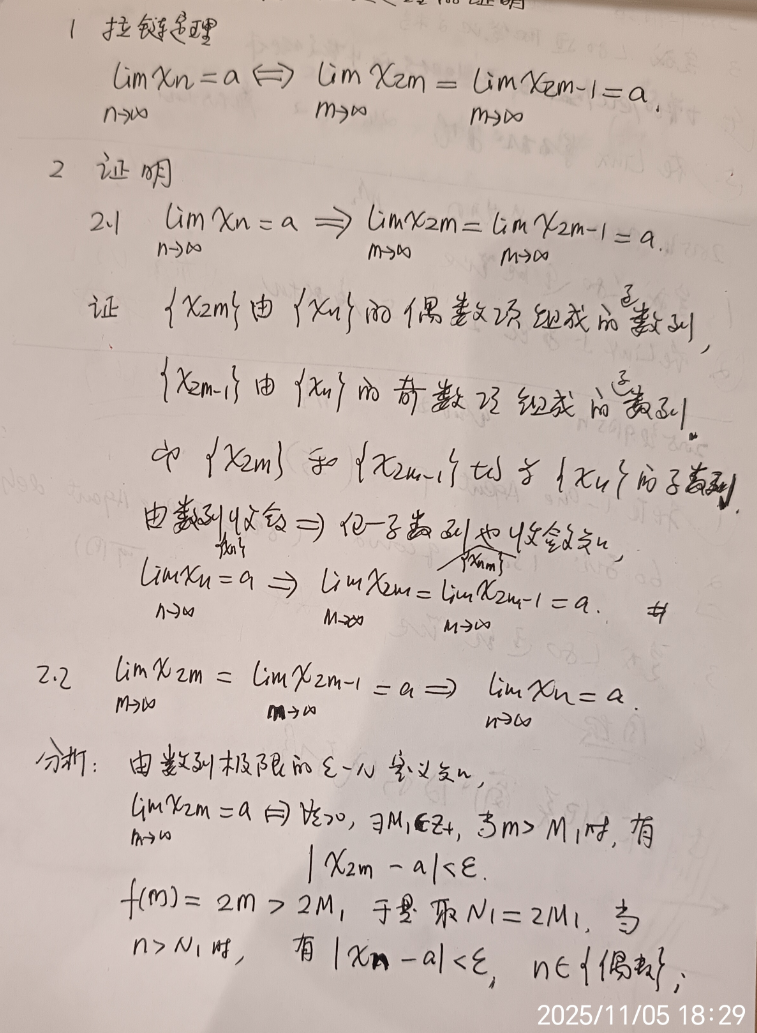 1 拉链定理
lim xn = a ⇔ lim x2m = lim x2m-1 = a.
n→∞ m→∞ m→∞
2 证明
2.1 lim xn = a ⇒ lim x2m = lim x2m-1 = a.
n→∞ m→∞ m→∞
证 {x2m} 由 {xn} 的偶数项组成的子数列,
{x2m-1} 由 {xn} 的奇数项组成的子数列.
即 {x2m} 和 {x2m-1} 均为 {xn} 的子数列.
由数列{xn}收敛 ⇒ 任一子数列{xnm}也收敛知,
lim xn = a ⇒ lim x2m = lim x2m-1 = a. #
n→∞ m→∞ m→∞
2.2 lim x2m = lim x2m-1 = a ⇒ lim xn = a.
m→∞ m→∞ n→∞
分析: 由数列极限的 ε-N 定义知,
lim x2m = a ⇔ ∀ε>0, ∃M1∈Z+, 当m > M1时, 有
m→∞
|x2m - a| < ε.
f(m) = 2m > 2M1 于是取 N1 = 2M1, 当
n > N1 时, 有 |xn - a| < ε, n∈{偶数};
2025/11/05 18:29